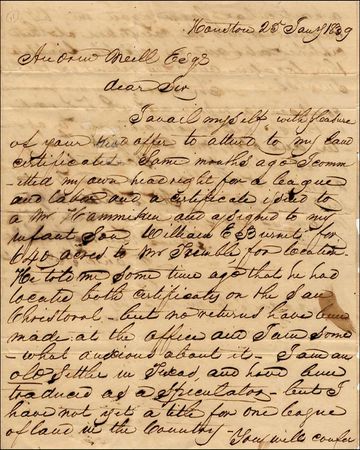 Houston 25 Jany 1839
Andrew Neill Esqr
dear Sir
I avail myself with pleasure
of your kind offer to attend to my land
certificates. Some months ago I comm
-itted my own headright for a league
and labor and a certificate issued to
a Mr and assigned to my
infant Son William E Burnet for
640 acres to Mr Trimble for location
He told me some time ago that he had
located both certificates on the San
Christoval - but no returns have been
made at the office and I am some
-what anxious about it - I am an
old Settler in Texas and have been
traduced as a Speculator - but I
have not yet a title for one league
of land in the Country - You will confer